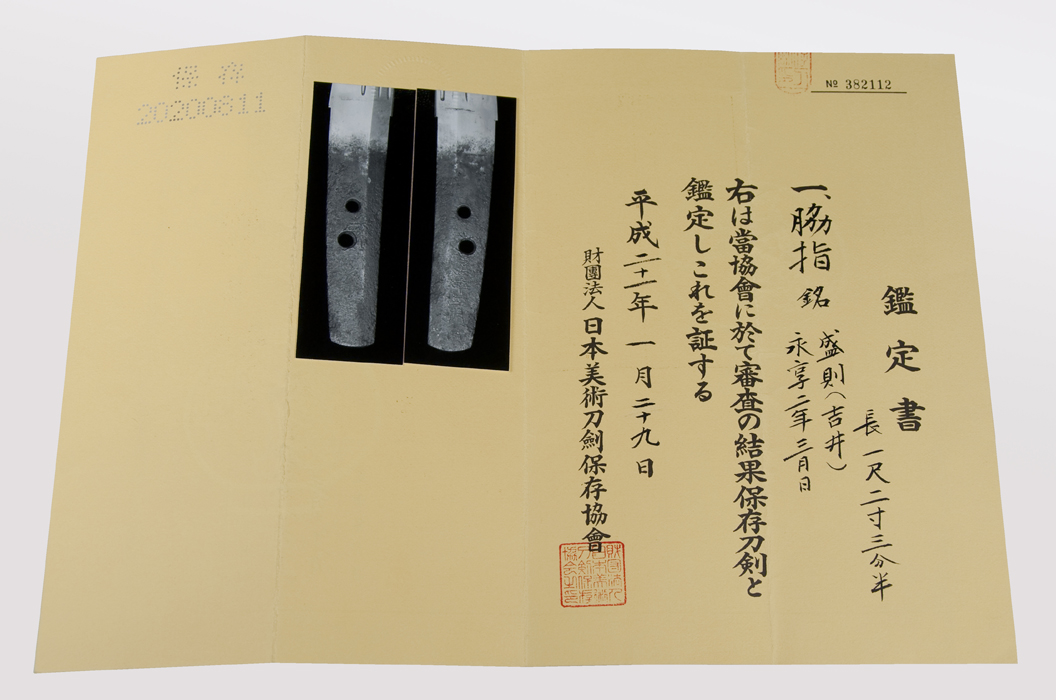 № 382112
鑑定書
一、脇指 銘 盛則（吉井）
永享二年三月日
長一尺二寸三分半
右は當協會に於て審査の結果保存刀剣と
鑑定しこれを証する
平成二十一年一月二十九日
財團法人日本美術刀劍保存協會
保存
20200811